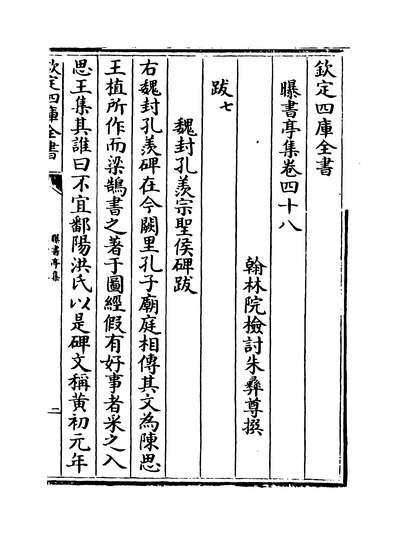 欽定四庫全書
曝書亭集卷四十八
翰林院檢討朱彝尊撰
跋七
魏封孔羨宗聖侯碑跋
右魏封孔羨碑在今闕里孔子廟庭相傳其文為陳思
王植所作而梁鵠書之著于圖經假有好事者采之入
思王集其誰曰不宜鄱陽洪氏以是碑文稱黄初元年
欽定四庫全書
曝書亭集